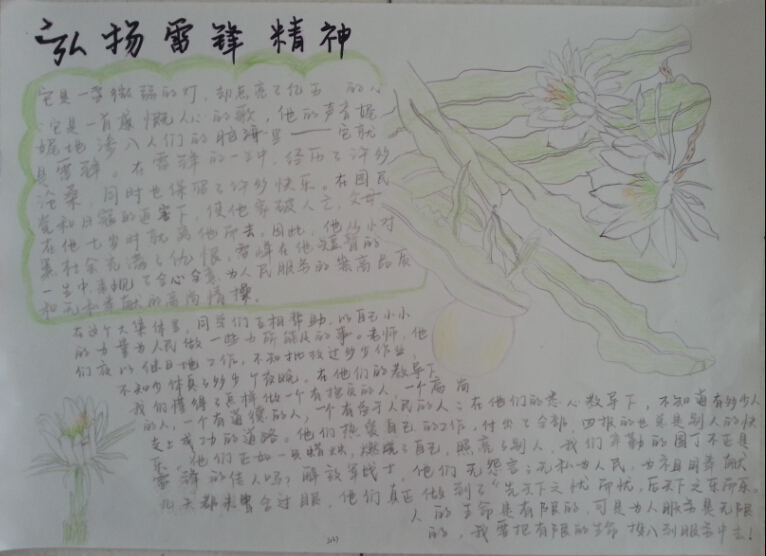 弘扬雷锋精神
它是一盏微弱的灯,却点亮了亿万 的心
它是一首慷慨人心的歌,他的声音娓
娓地渗入人们的脑海里——它就
是雷锋。在雷锋的一生中,经历了许多
沧桑,同时也保留了许多快乐。在国民
党和日寇的迫害下,使他家破人亡,父母
在他七岁时就离他而去,因此,他从小对
社会充满了仇恨,雷锋在他短暂的
一生中表现了全心全意为人民服务的崇高品质
和无私奉献的高尚情操。
在这个大集体里,同学们互相帮助,以自己小小
的力量为人民做一些力所能及的事。老师,他
们夜以继日地工作,不知批改过多少作业,
不知少休息了多少个夜晚。在他们的教导下
我们懂得了怎样做一个有理想的人,一个高尚
的人,一个有道德的人,一个有益于人民的人;在他们的悉心教导下,不知道有多少人
走上成功的道路。他们热爱自己的工作,付出了全部,回报的也总是别人的快
乐,他们正如一支蜡烛,燃烧了自己,照亮了别人,我们辛勤的园丁不正是
雷锋的传人吗?解放军战士,他们无怨言;无私为人民,为祖国奉献
几天都未曾合过眼,他们真正做到了“先天下之忧而忧,后天下之乐而乐。
人的生命是有限的,可是为人服务是无限
的,我要把有限的生命投入到服务中去!